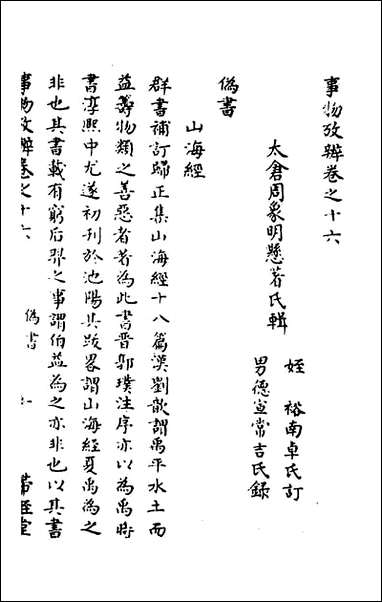 事物攷辨卷之十六
太倉周象明懸著氏輯
姪 裕南卓氏訂
男德宣常吉氏錄
偽書
山海經
群書補訂歸正集山海經十八篇漢劉歆謂禹平水土而
益等物類之善惡者著為此書晋郭璞注序亦以為禹時
書淳熙中尤遂初刊於池陽其跋畧謂山海經夏禹為之
非也其書載有窮后羿之事謂伯益為之亦非也以其書
事物攷辨卷之十六
偽書